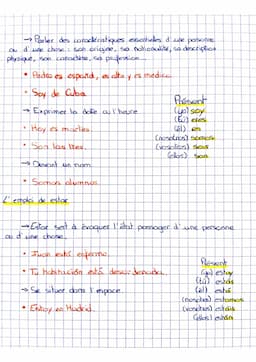 → Parler des caractéristiques essentielles d'une personne
ou d'une chose : son origine, sa nationalité, sa description
physique, son caractère, sa profession...
• Pedro es español, es alto y es médico.
• Soy de Cuba.
Présent
→ Exprimer la date ou l'heure
(yo) soy
(tú) eres
• Hoy es martes.
(él) es
(nosotros) somos
• Son las tres.
(vosotros) sois
(ellos) son
→ Devant un nom
• Somos alumnos.
L'emploi de estar
→ Estar sert à évoquer l'état passager d'une personne
ou d'une chose.
• Juan está enfermo.
Présent
• Tu habitación está desordenada.
(yo) estoy
(tú) estás
→ Se situer dans l'espace.
(él) está
(nosotros) estamos
• Estoy en Madrid.
(vosotros) estáis
(ellos) están